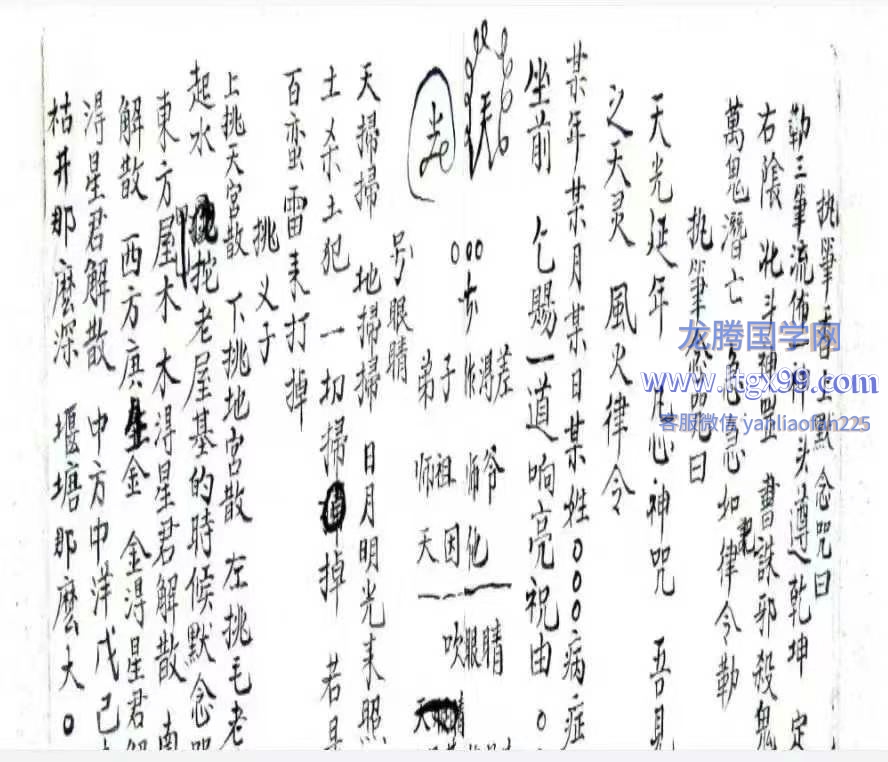 执筆舌上默念咒曰
勒三筆流佈一
头遵乾坤 定
右陰 北斗神
書誅邪殺鬼
萬鬼潛亡 急急如律令勒
執筆念咒曰
天光延年 月心神咒 吾見
之天灵 風火律令
某年某月某日某姓000病症
坐前 乞賜一道响亮祝由 0
天
000
步
弟子
师祖 师爷
天因化
吹眼睛
号眼睛
天掃掃 地掃掃 日月明光来照
土杀土犯 一切掃 掉 若是
百蛮雷来打掉
挑义子
上挑天宫散 下挑地宫散 左挑毛老
起水
挖老屋基的時候默念咒
東方屋木 木淂星君解散 南
解散 西方庚 金 金淂星君解
淂星君解散 中方中洋戊己
枯井那麽深 堰塘那麽大0
龙腾国学网
www.ltgx99.com
客服微信 yanliaofan225